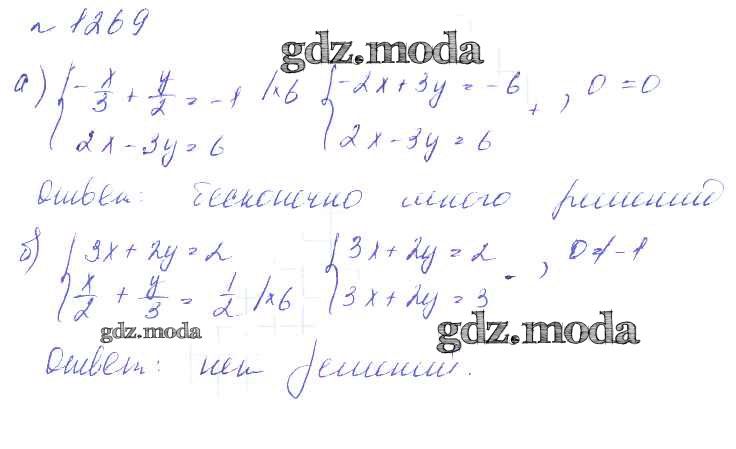 № 1269
gdz.moda
а) { -x/3 + y/2 = -1 |×6 { -2x+3y = -6 + , 0 = 0
2x - 3y = 6 2x - 3y = 6
Ответ: бесконечно много решений
б) { 3x + 2y = 2 { 3x + 2y = 2 - , 0 ≠ -1
x/2 + y/3 = 1/2 |×6 3x + 2y = 3
gdz.moda gdz.moda
Ответ: нет решений.